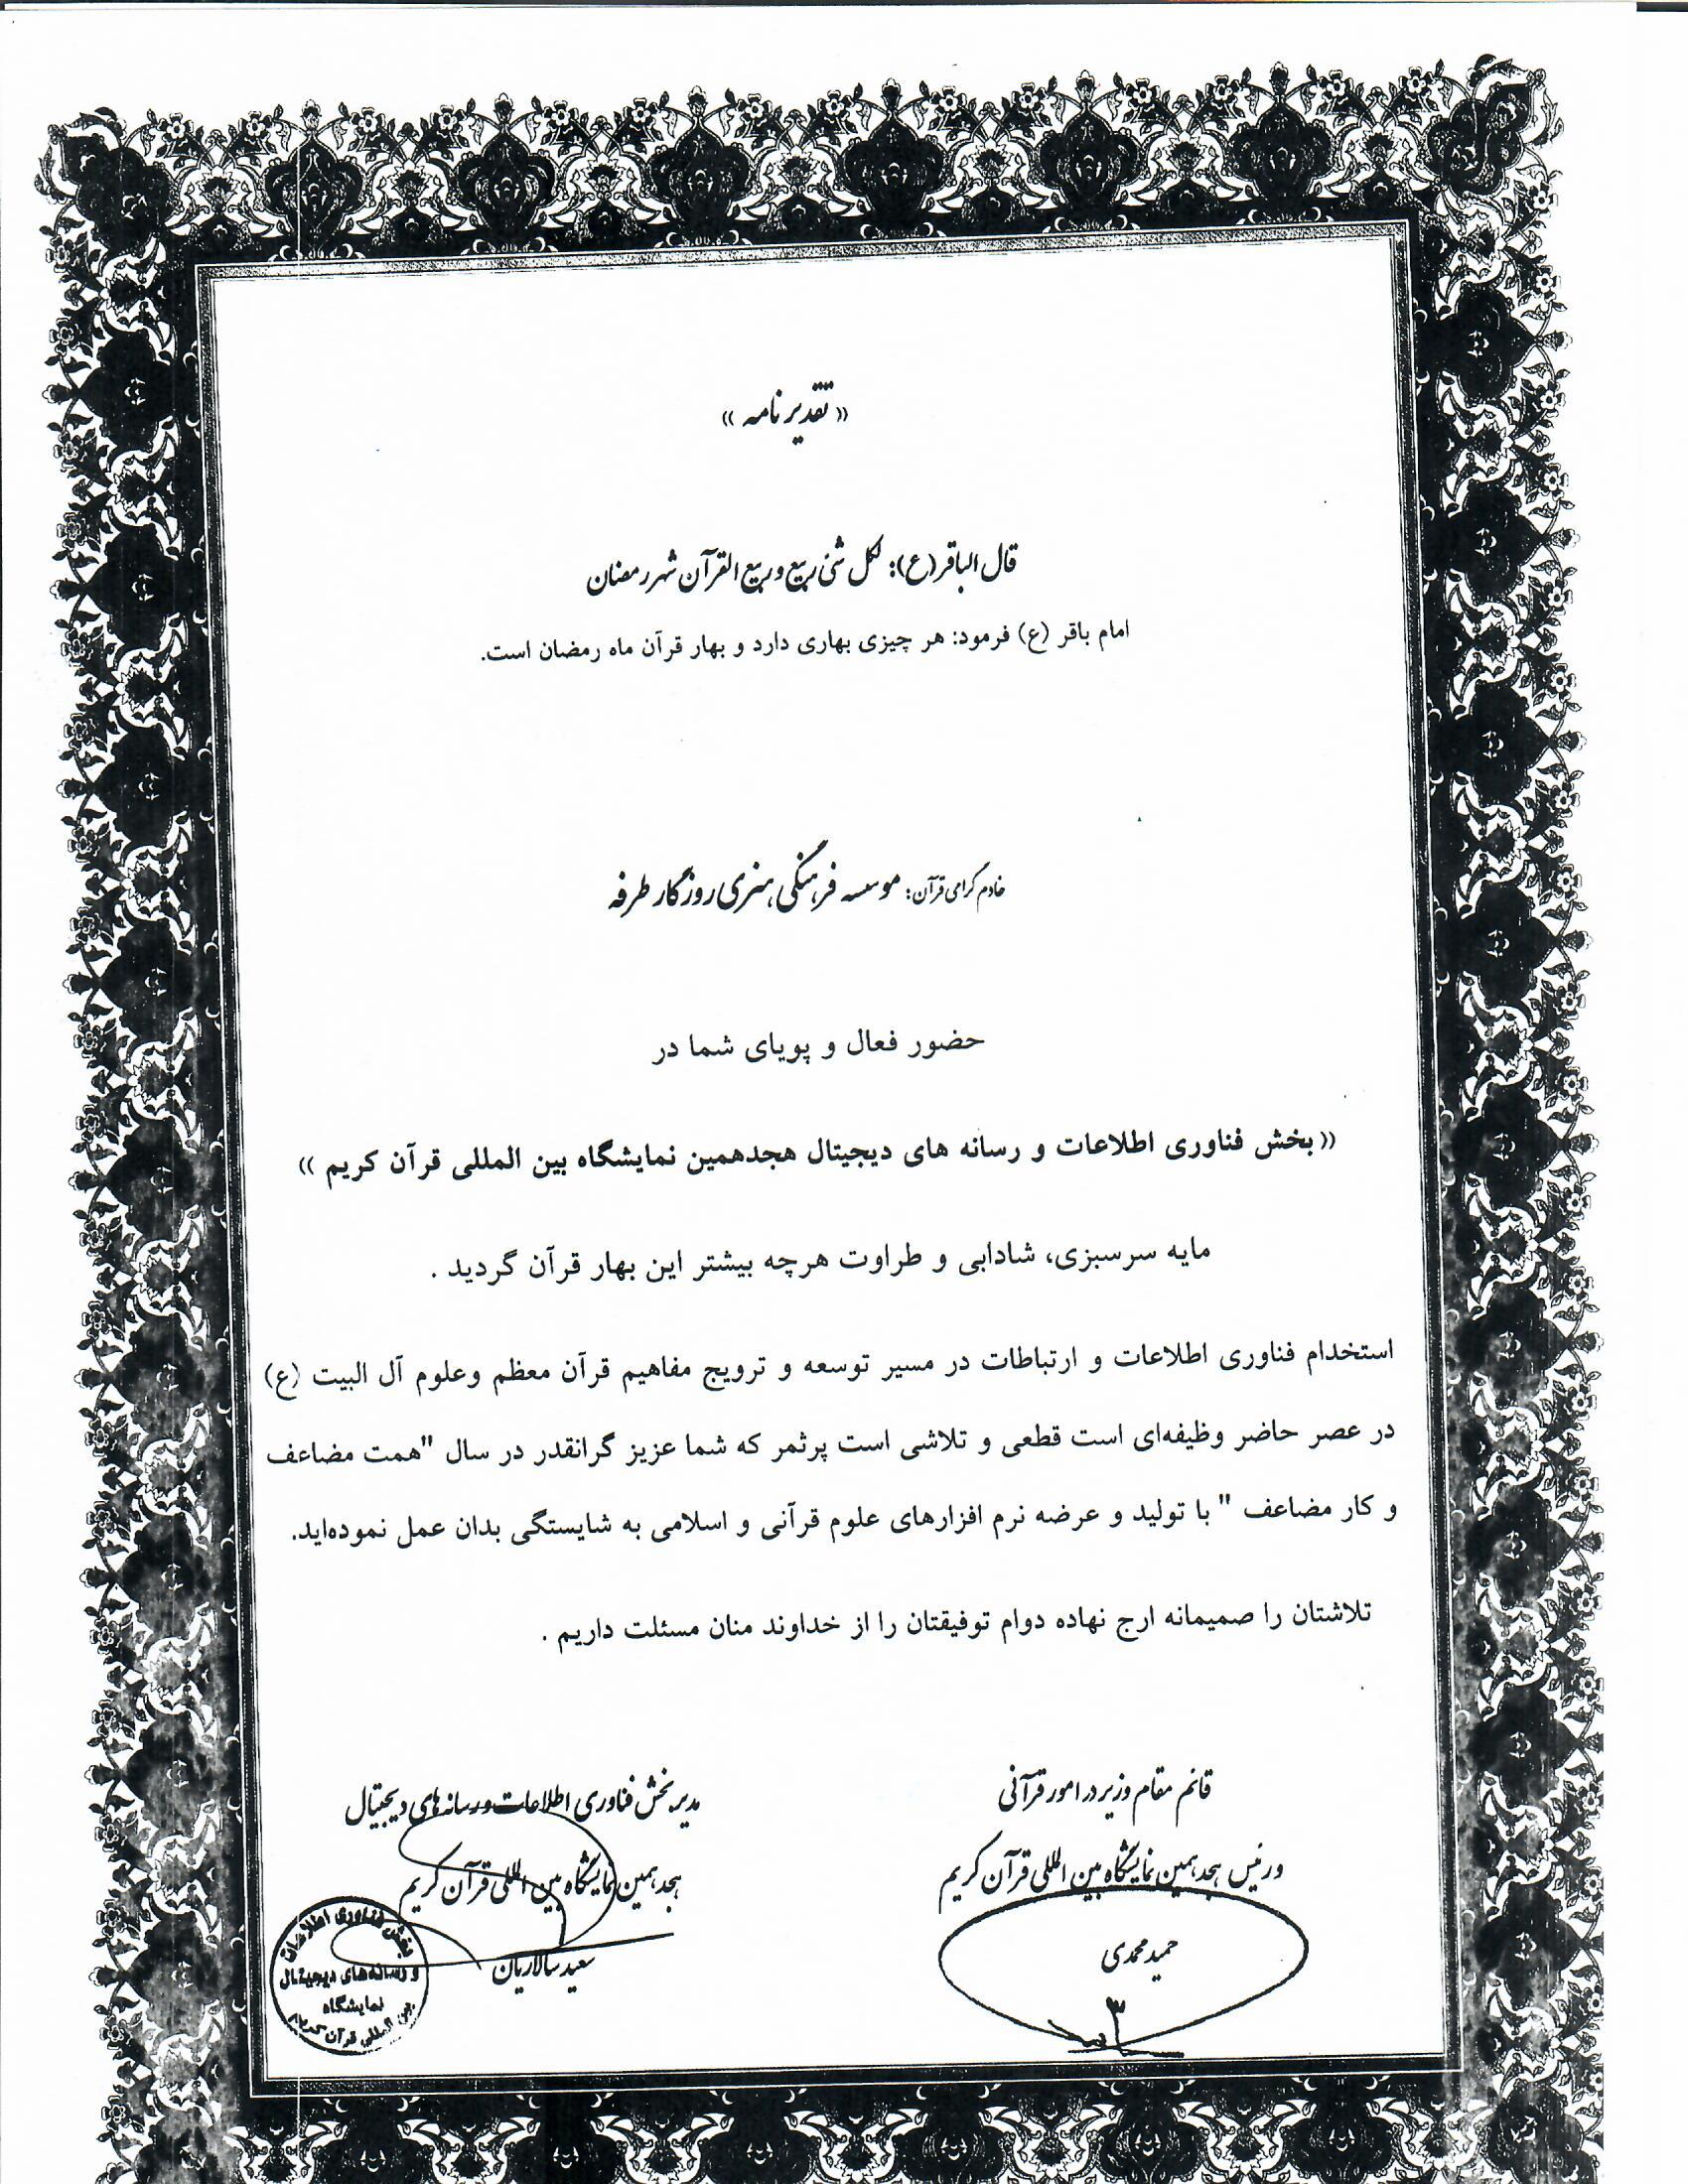 « تقدیر نامه »
قال الباقر(ع): لکل شئ ربیع و ربیع القرآن شهر رمضان
امام باقر (ع) فرمود: هر چیزی بهاری دارد و بهار قرآن ماه رمضان است.
خادم گرامی قرآن: موسسه فرهنگی هنری روزگار طرفه
حضور فعال و پویای شما در
« بخش فناوری اطلاعات و رسانه های دیجیتال هجدهمین نمایشگاه بین المللی قرآن کریم »
مایه سرسبزی، شادابی و طراوت هرچه بیشتر این بهار قرآن گردید .
استخدام فناوری اطلاعات و ارتباطات در مسیر توسعه و ترویج مفاهیم قرآن معظم وعلوم آل البیت (ع)
در عصر حاضر وظیفه‌ای است قطعی و تلاشی است پرثمر که شما عزیز گرانقدر در سال "همت مضاعف
و کار مضاعف " با تولید و عرضه نرم افزارهای علوم قرآنی و اسلامی به شایستگی بدان عمل نموده‌اید.
تلاشتان را صمیمانه ارج نهاده دوام توفیقتان را از خداوند منان مسئلت داریم .
قائم مقام وزیر در امور قرآنی
و رئیس هجدهمین نمایشگاه بین المللی قرآن کریم
حمید محمدی
مدیر بخش فناوری اطلاعات و رسانه های دیجیتال
هجدهمین نمایشگاه بین المللی قرآن کریم
سعید سالاریان
بخش فناوری اطلاعات
و رسانه‌های دیجیتال
نمایشگاه
بین المللی قرآن کریم